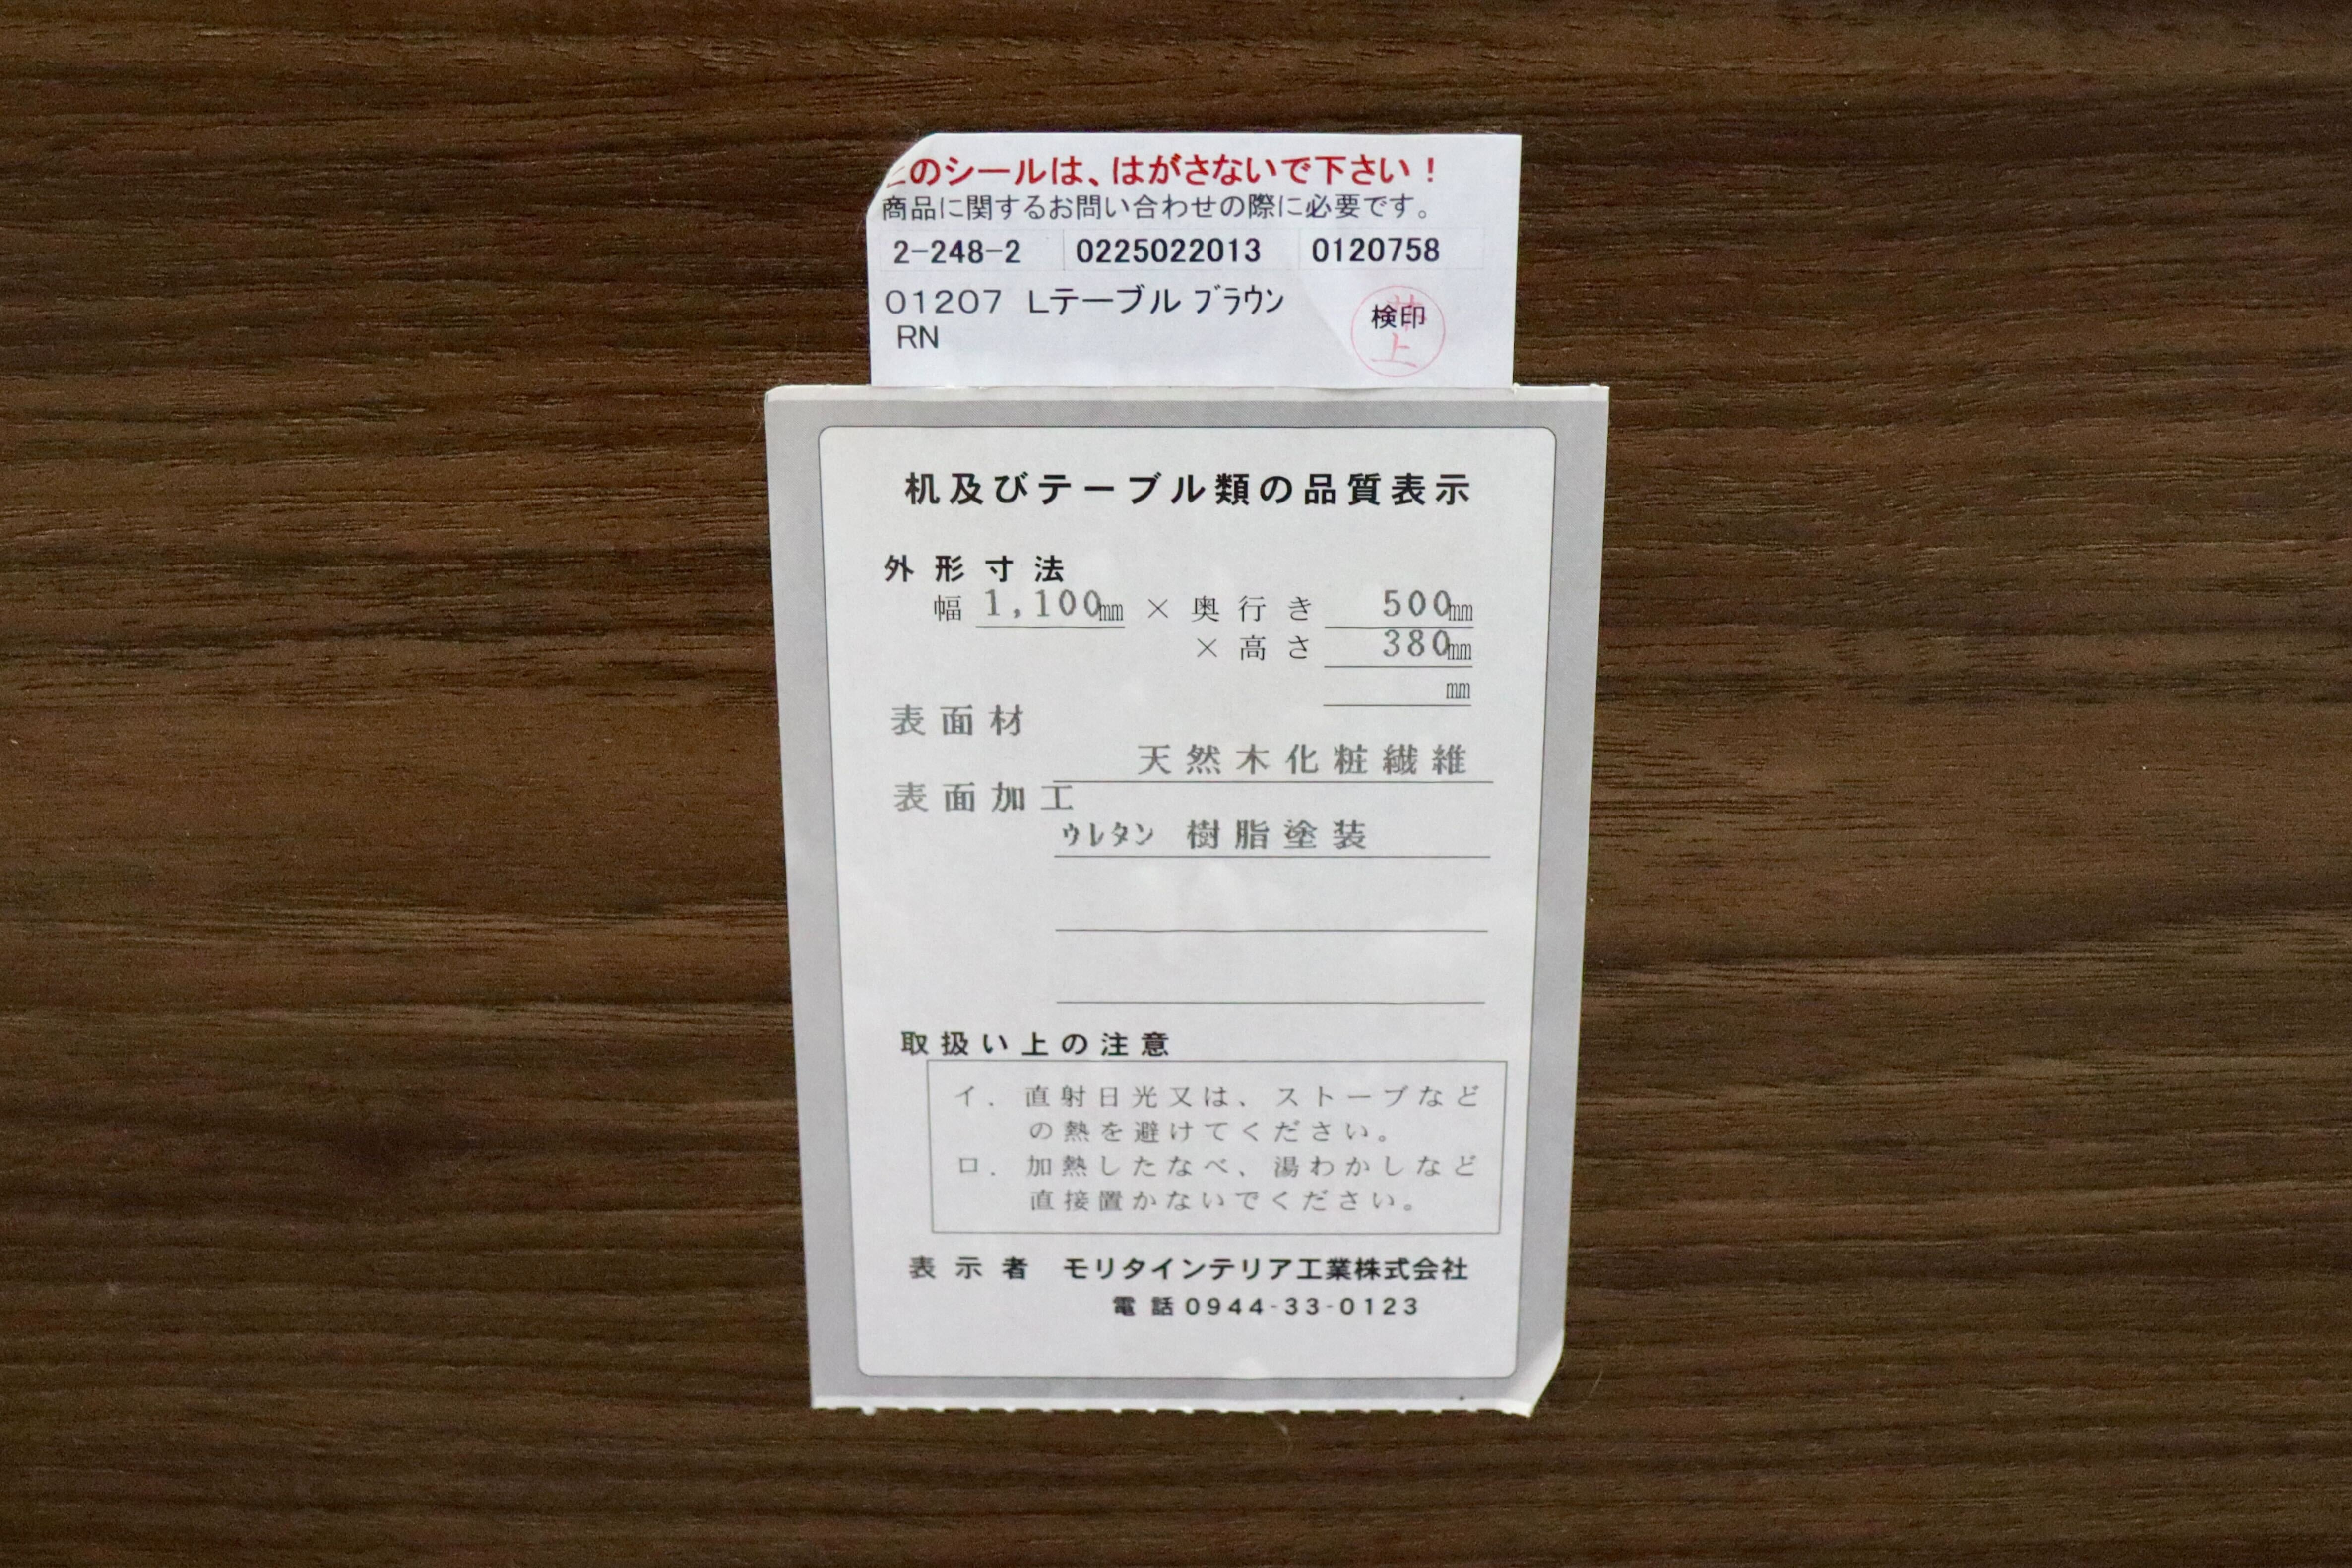 このシールは、はがさないで下さい！
商品に関するお問い合わせの際に必要です。
2-248-2 0225022013 0120758
01207 Lテーブル ﾌﾞﾗｳﾝ
RN
検印
机及びテーブル類の品質表示
外形寸法
幅 1,100㎜ × 奥行き 500㎜
× 高さ 380㎜
㎜
表面材
天然木化粧繊維
表面加工
ｳﾚﾀﾝ 樹脂塗装
取扱い上の注意
イ． 直射日光又は、ストーブなど
の熱を避けてください。
ロ． 加熱したなべ、湯わかしなど
直接置かないでください。
表示者 モリタインテリア工業株式会社
電話0944-33-0123